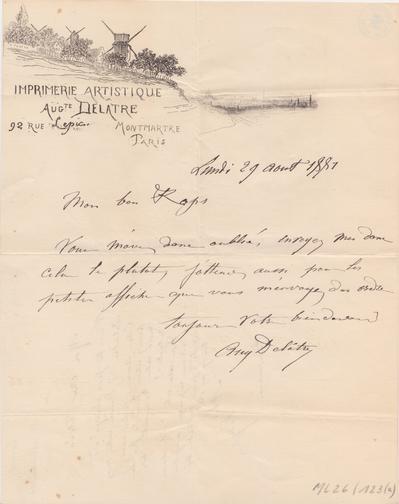 IMPRIMERIE ARTISTIQUE
AUGTE DELÂTRE
92 RUE Lepic
MONTMARTRE
PARIS
Lundi 29 aout 1887
Mon bon Rops
Vous m'avez donc oublié, envoyez moi donc
cela le plutot, j'attend aussi pour les
petites affiche que vous m'envoyez des ordre
toujour votre bien devoué
Aug Delâtre
ML26/123(a)